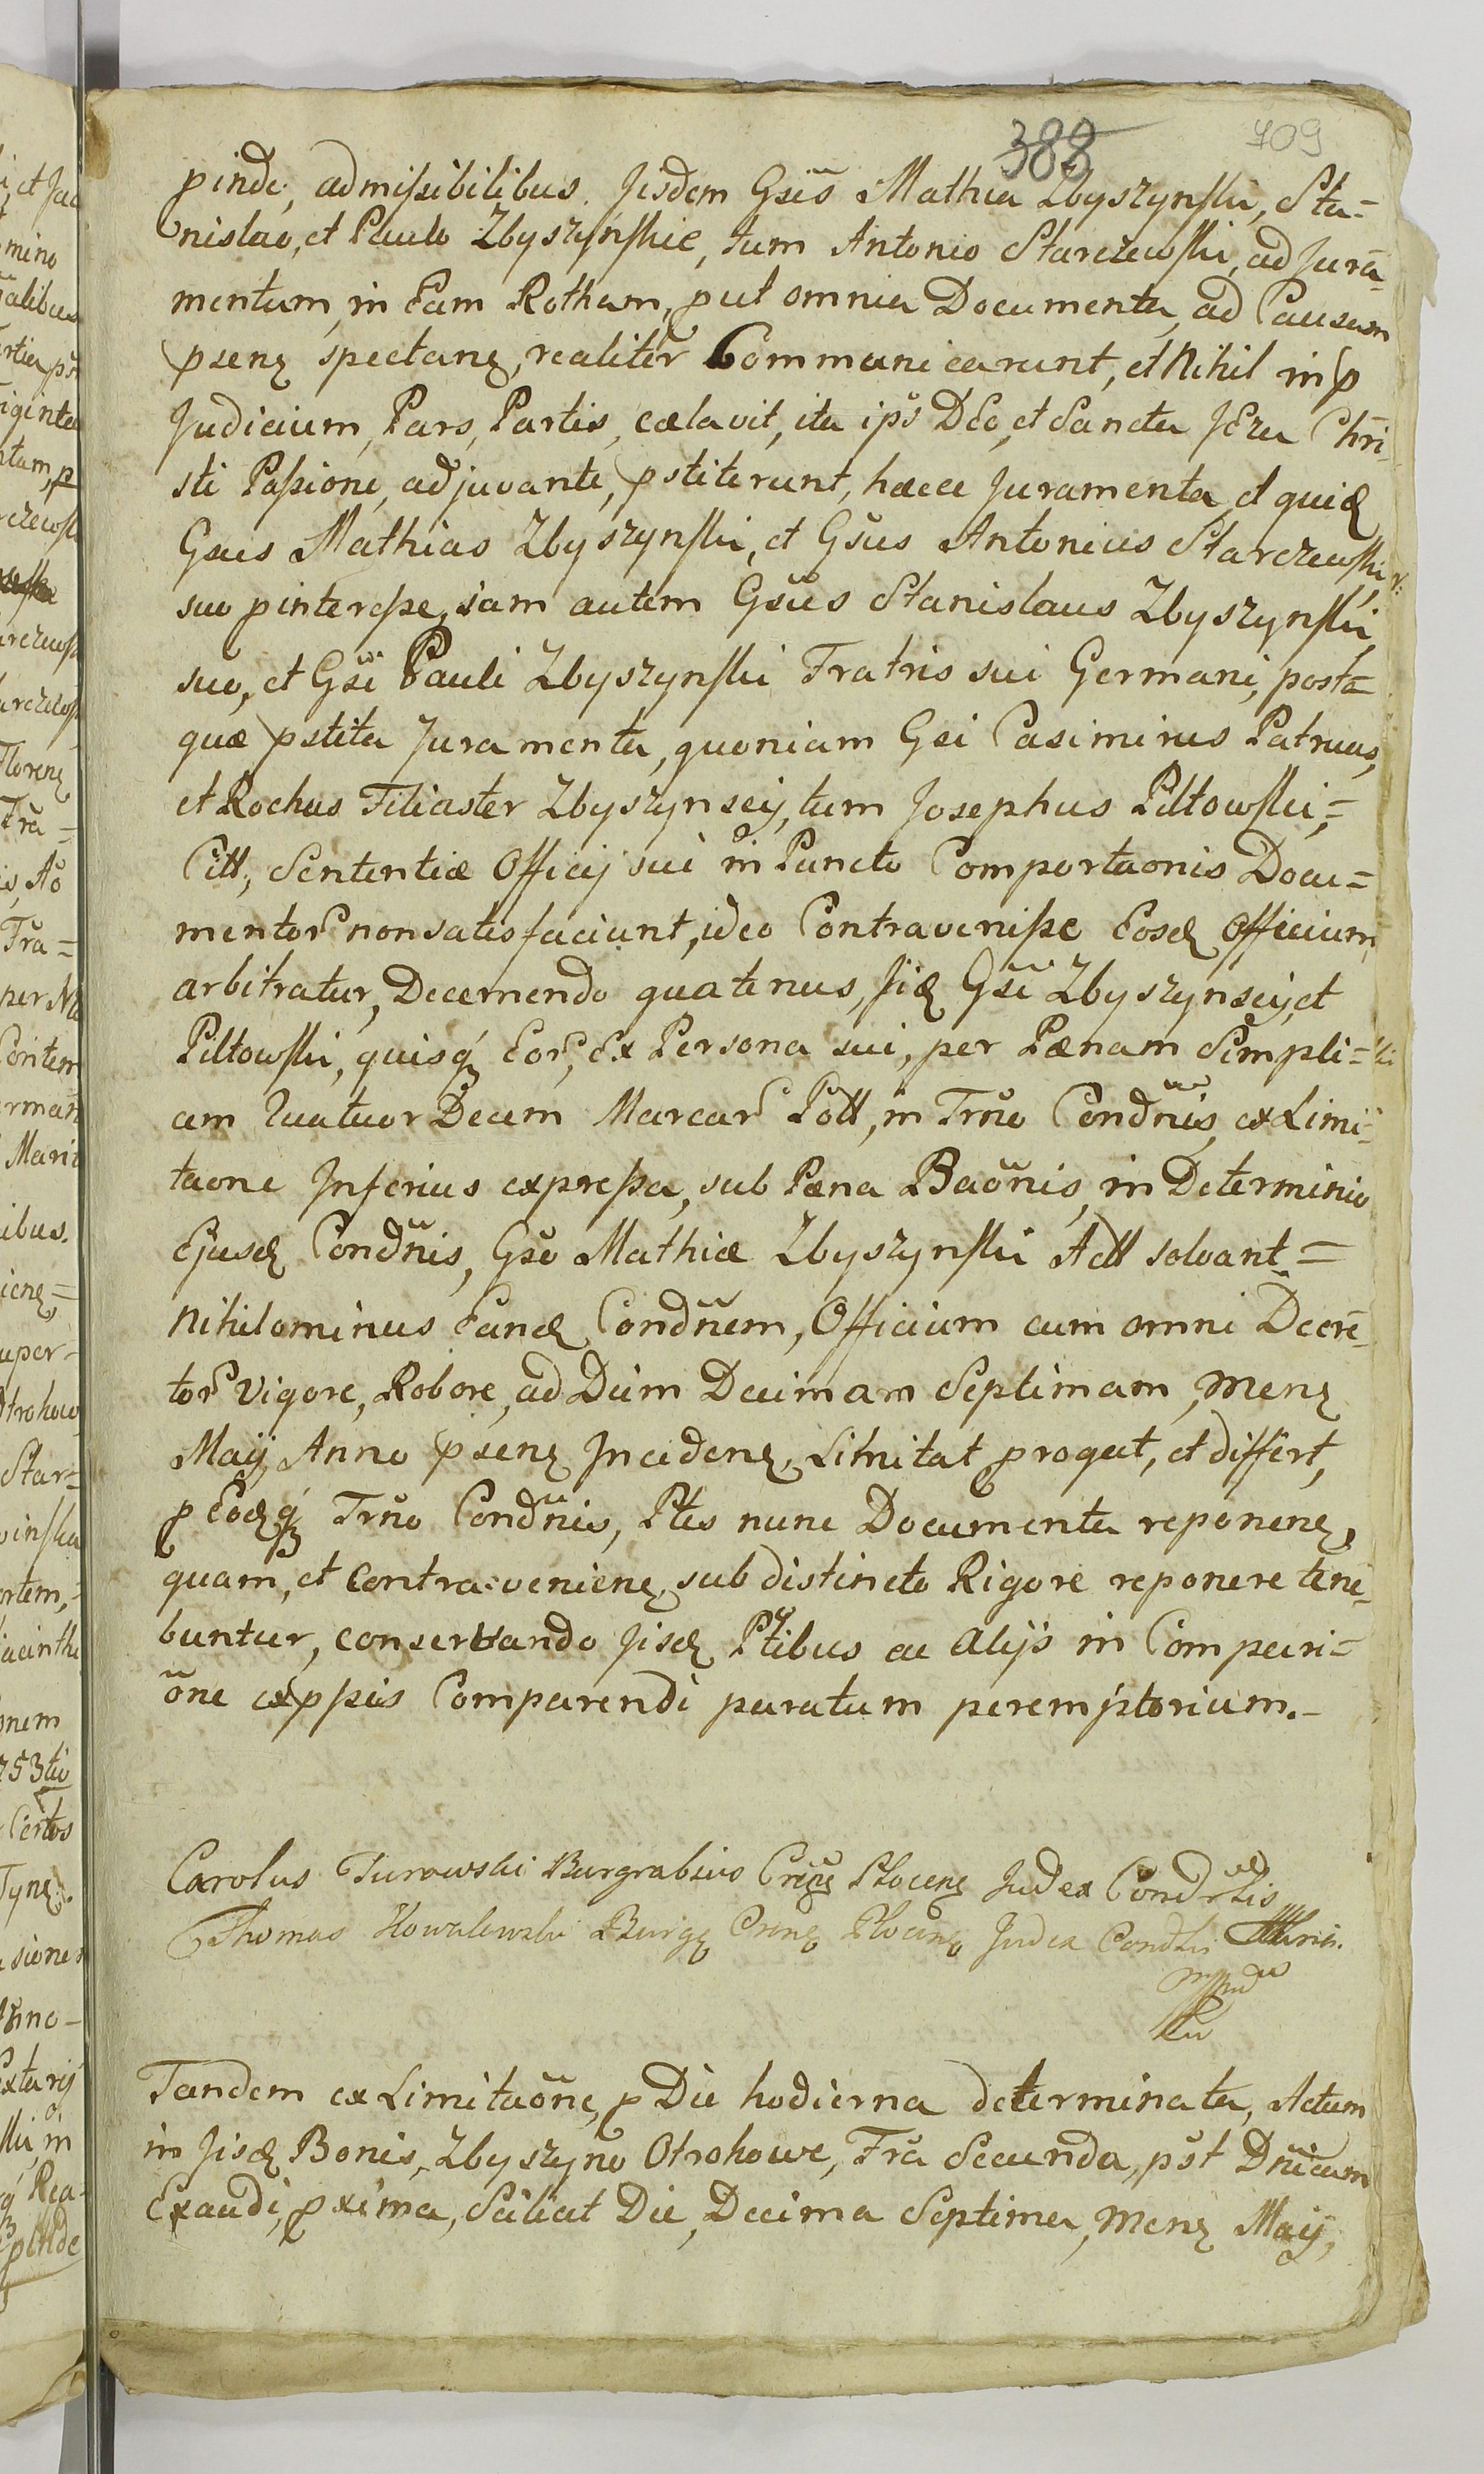 388 709
pinde, admissibilibus. Jisdem Gsis Mathia Zbyszynski, Sta=
nislao, et Paulo Zbyszynskie, tum Antonio Starczewski, ad Jura=
mentum, in Eam Rotham, put omnia Documenta, ad Causam
psenȝ spectanȝ, realiter Communicarunt, et Nihil in p
Judicium, Pars, Partis, cælavit, ita ips DEo, et Sancta JEzu Chri=
sti Passione, adjuvante, pstiterunt, hæce Juramenta, et quiȝ
Gsus Mathias Zbyszynski, et Gsus Antonius Starczewski
suo pinteresse, jam autem Gsus Stanislaus Zbyszynski,
suo, et Gsi Pauli Zbyszynski Fratris sui Germani, posta=
quæ pstita Juramenta, quoniam Gsi Casimirus Patruus,
et Rochus Filiaster Zbyszynscij, tum Josephus Piltowski,=
Citt, Sententiæ Officij sui in Puncto Comportaonis Docu=
mentor nonsatisfaciunt, ideo Contravenisse Eosȝ Officium
arbitratur, Decernendo quatenus, Jiȝ Gsi Zbyszynscij, et
Piltowski, quisqȝ Eor, Ex Persona sui, per Pænam Simpli=
cem Quatuor Decem Marcar Poll, in Trno Condnis, ex Limi=
taone Inferius expressa, sub Pæna Baonis, in Determinio
Ejusȝ Condnis, Gso Mathiæ Zbyszynski Actt solvant.=
Nihilominus Eanȝ Condnem, Officium cum omni Decre=
tor Vigore, Robore, ad Diem Decimam Septimam, Menȝ
Maij, Anno psenȝ Incidenȝ, Limitat progat, et differt,
p Eoȝqȝ Trno Condnis, Ptes nunc Documenta reponenȝ,
quam, et Contra-venienȝ, sub distincto Rigore reponere tene=
buntur, conservando Jisȝ Ptibus ac alijs in Compari=
one exppsis Comparendi paratum peremptorium.–
Carolus Turowski Burgrabius Crenȝ Plocenȝ Judex Condrlis
Thomas Kowalewski Burgȝ Crenȝ Plocenȝ Judex Condlis
Tandem ex Limitaone, p Die hodierna determinata, Actum
in Jisȝ Bonis, Zbyszyno Otrohowe, Fra Secunda, pst Dnicam
Exaudi, pxima, Scilicet Die, Decima Septima, Menȝ Maij,